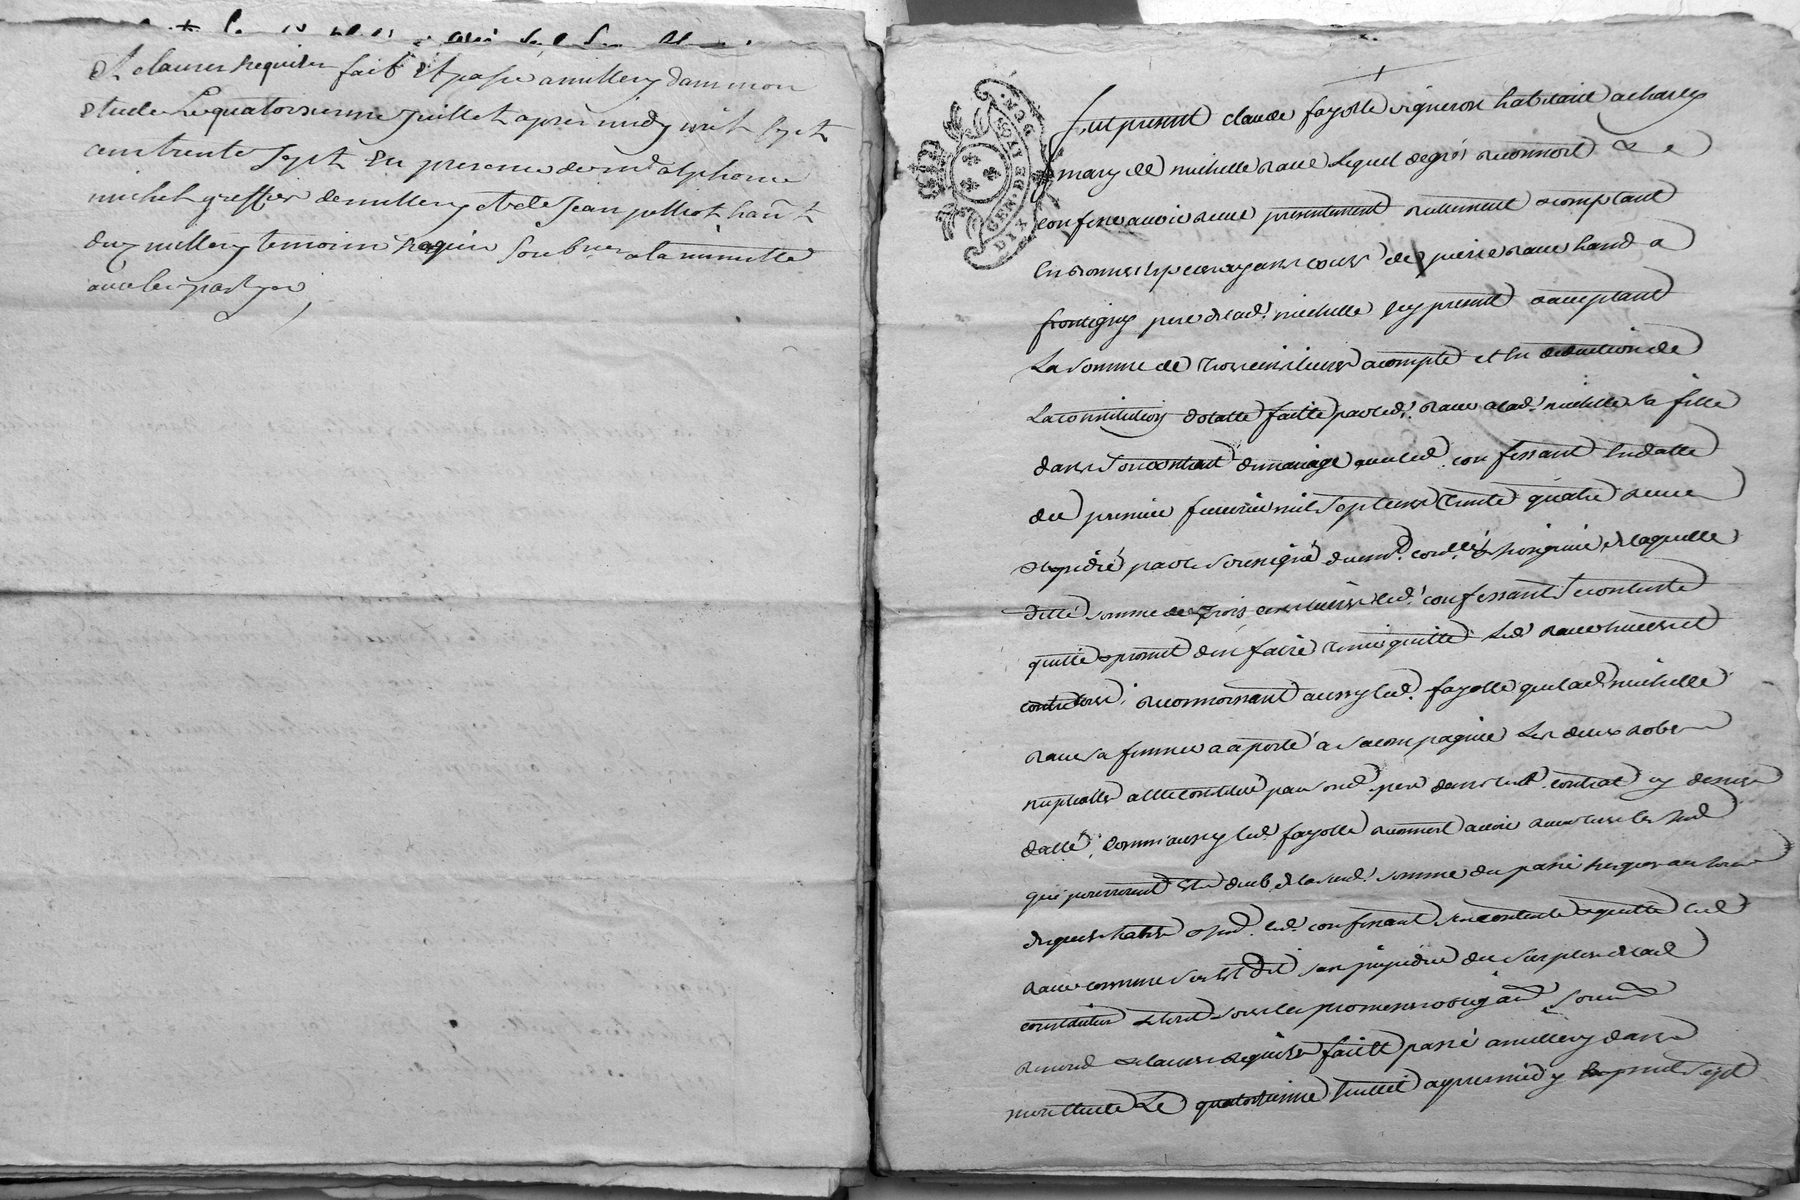 et clauses requises fait et passé a millery dans mon
etude Le quatorzieme juillet apres midy mil sept
cent trente sept en presence de m.e alphonce
michel greffier de millery et de jean hant
du millery temoins requis soub.nes a la minutte
avec les partyes
GEN. DE
DIX
Fut present claude fayolle vigneron habitant a charly
mary de michelle raue Lequel de gré reconnoit &
confesse avoir receu presentement reellement & comptant
en bonnes especes ayans cours de pierre raue hand a
frontigny pere de lad. michelle icy present & acceptant
La somme de trois cens livres acompte et en deduction de
La constitution dotalle faitte par led. raue a lad. michelle sa fille
dans son contrat de mariage avec led. confessant en datte
du premier feuvrier mil sept cens trente quatre receu
& expedié par le soussigné de laquelle
ditte somme de trois cens livres led. confessant se contente
quitte & promet d'en faire tenir quitte led. raue envers et
contre tous, reconnoissant aussy led. fayolle que lad. michelle
raue sa femme a aporté a sa compagnie Les deux robes
nuptialles a elle constitué par sond. pere dans led. contrat cy dessus
datté, comme aussy led. fayolle reconnoit avoir receu
qui pourroient estre deub de la sud. somme du passé jusques au jour
desquels habits & led. confessant se contente & quitte led.
raue comme sus est dit sans prejudice du surplus de lad.
constitution sous les promesses oblig.
renond. & clauses requises fait et passé a millery dans
mon etude Le quatorzieme juillet apres midy mil sept